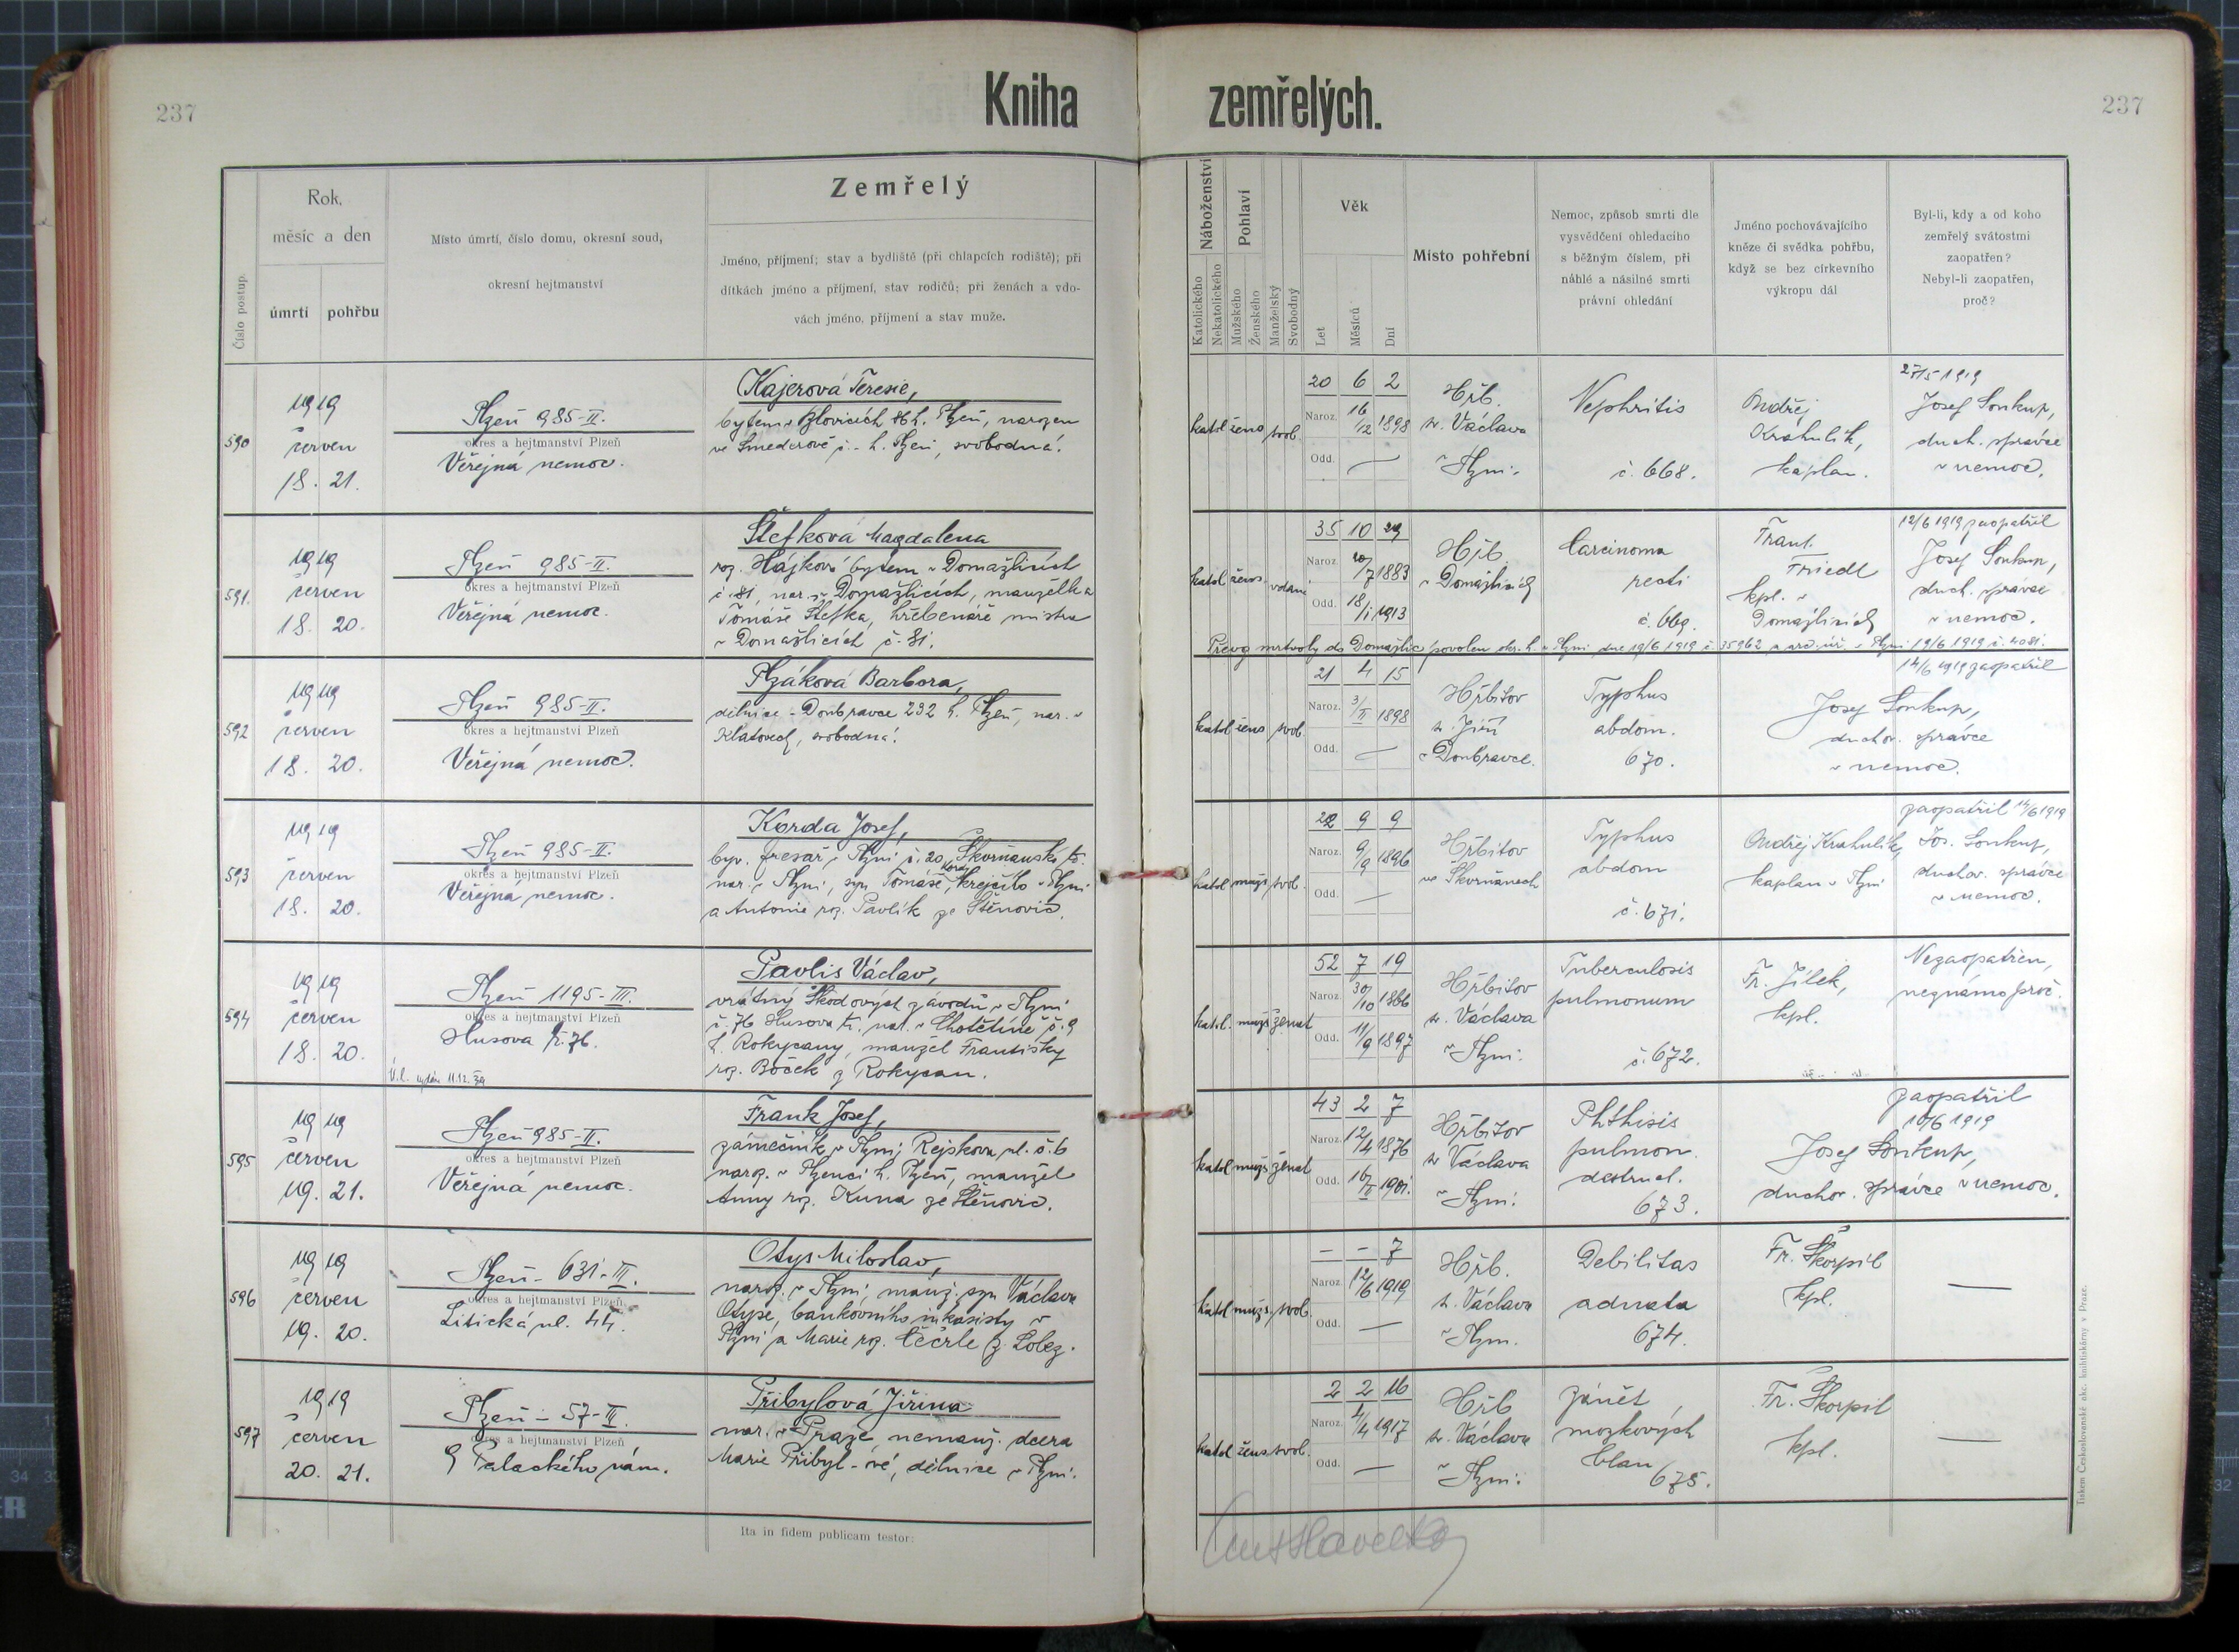 237
Kniha
zemřelých.
237
Číslo postup.
Rok,
měsíc a den
úmrtí
pohřbu
Místo úmrtí, číslo domu, okresní soud,
okresní hejtmanství
Zemřelý
Jméno, příjmení; stav a bydliště (při chlapcích rodiště); při
dítkách jméno a příjmení, stav rodičů; při ženách a vdo-
vách jméno, příjmení a stav muže.
Náboženství
Katolického
Nekatolického
Pohlaví
Mužského
Ženského
Manželský
Svobodný
Věk
Let
Měsíců
Dní
Místo pohřební
Nemoc, způsob smrti dle
vysvědčení ohledacího
s běžným číslem, při
náhlé a násilné smrti
právní ohledání
Jméno pochovávajícího
kněze či svědka pohřbu,
když se bez církevního
výkropu dál
Byl-li, kdy a od koho
zemřelý svátostmi
zaopatřen?
Nebyl-li zaopatřen,
proč?
590
1919
červen
18. 21.
Plzeň 985-II.
okres a hejtmanství Plzeň
Veřejná nemoc.
Kajerová Teresie,
bytem v Blovicích h. Plzeň, narozen
ve Smederově h. Plzeň, svobodná.
katol žens svob.
20 6 2
Naroz. 16/12 1898
Odd. —
Hřb.
sv. Václava
v Plzni.
Nephritis
č. 668.
Ondřej
Krahulík,
kaplan.
27/5 1919
Josef Soukup,
duch. správce
v nemoc.
591.
1919
červen
18. 20.
Plzeň 985-II.
okres a hejtmanství Plzeň
Veřejná nemoc.
Štefková Magdalena
roz. Hájková bytem v Domažlicích
č. 81, nar. v Domažlicích, manželka
Tomáše Štefka, hřebenáře mistra
v Domažlicích č. 81.
katol žens. vdaná
35 10 29
Naroz. 20/7 1883
Odd. 18/1 1913
Hřb.
v Domažlicích
Carcinoma
recti
č. 669.
Frant.
Friedl
kpl. v
Domažlicích
12/6 1919 zaopatřil
Josef Soukup,
duch. správce
v nemoc.
Převoz mrtvoly do Domažlic povolen okr. h. v Plzni dne 19/6 1919 č. 35962 a arc. úř. v Plzni 19/6 1919 č. 4081.
592
1919
červen
18. 20.
Plzeň 985-II.
okres a hejtmanství Plzeň
Veřejná nemoc.
Plzáková Barbora,
dělnice - Doubravce 232 h. Plzeň, nar. v
Klatovech, svobodná.
katol žens svob.
21 4 15
Naroz. 3/II 1898
Odd. —
Hřbitov
sv. Jiří
v Doubravce.
Typhus
abdom.
670.
14/6 1919 zaopatřil
Josef Soukup,
duchov. správce
v nemoc.
593
1919
červen
18. 20.
Plzeň 985-II.
okres a hejtmanství Plzeň
Veřejná nemoc.
Korda Josef,
byv. fresař v Plzni č. 20, Skvrňanská tř.
nar. v Plzni, syn Tomáše Kordy, krejčího v Plzni
a Antonie roz. Pavlík ze Štěnovic.
katol mužs svob.
22 9 9
Naroz. 9/9 1896
Odd. —
Hřbitov
ve Skvrňanech
Typhus
abdom
č. 671.
Ondřej Krahulík,
kaplan v Plzni
zaopatřil 14/6 1919
Jos. Soukup,
duchov. správce
v nemoc.
594
1919
červen
18. 20.
Plzeň 1195-III.
okres a hejtmanství Plzeň
Husova tř. 76.
Ú.l. vydán 11.12.39
Pavlis Václav,
vrátný Škodových závodů v Plzni
č. 76 Husova tř. nar. v Chotětíně č. 9
h. Rokycany, manžel Františky
roz. Böček z Rokycan.
katol. mužs ženat
52 7 19
Naroz. 30/10 1866
Odd. 11/9 1897
Hřbitov
sv. Václava
v Plzni.
Tuberculosis
pulmonum
č. 672.
Fr. Jílek,
kpl.
Nezaopatřen,
neznámo proč.
595
1919
červen
19. 21.
Plzeň 985-II.
okres a hejtmanství Plzeň
Veřejná nemoc.
Frank Josef,
zámečník v Plzni, Rejskova ul. č. 6
naroz. v Plzenci h. Plzeň, manžel
Anny roz. Kuna ze Štěnovic.
katol mužs ženat
43 2 7
Naroz. 12/4 1876
Odd. 16/II 1901.
Hřbitov
sv Václava
v Plzni.
Phthisis
pulmon.
destruct.
673.
zaopatřil
10/6 1919
Josef Soukup,
duchov. správce v nemoc.
596
1919
červen
19. 20.
Plzeň - 631-III.
okres a hejtmanství Plzeň
Litická ul. 44.
Otys Miloslav,
naroz. v Plzni, manž. syn Václava
Otyse, bankovního inkasisty v
Plzni a Marie roz. Čečrle z Lobez.
katol mužs. svob.
— — 7
Naroz. 12/6 1919
Odd. —
Hřb.
sv. Václava
v Plzni.
Debilitas
adnata
674.
Fr. Škorpil
kpl.
—
597
1919
červen
20. 21.
Plzeň - 57-III.
okres a hejtmanství Plzeň
9 Palackého nám.
Přibylová Jiřina
nar. v Praze, nemanž. dcera
Marie Přibyl-ové, dělnice v Plzni.
katol žens svob.
2 2 16
Naroz. 4/4 1917
Odd. —
Hřb
sv. Václava
v Plzni.
Zánět
mozkových
blan
675.
Fr. Škorpil
kpl.
—
Ita in fidem publicam testor:
Tiskem Českoslovanské akc. knihtiskárny v Praze.